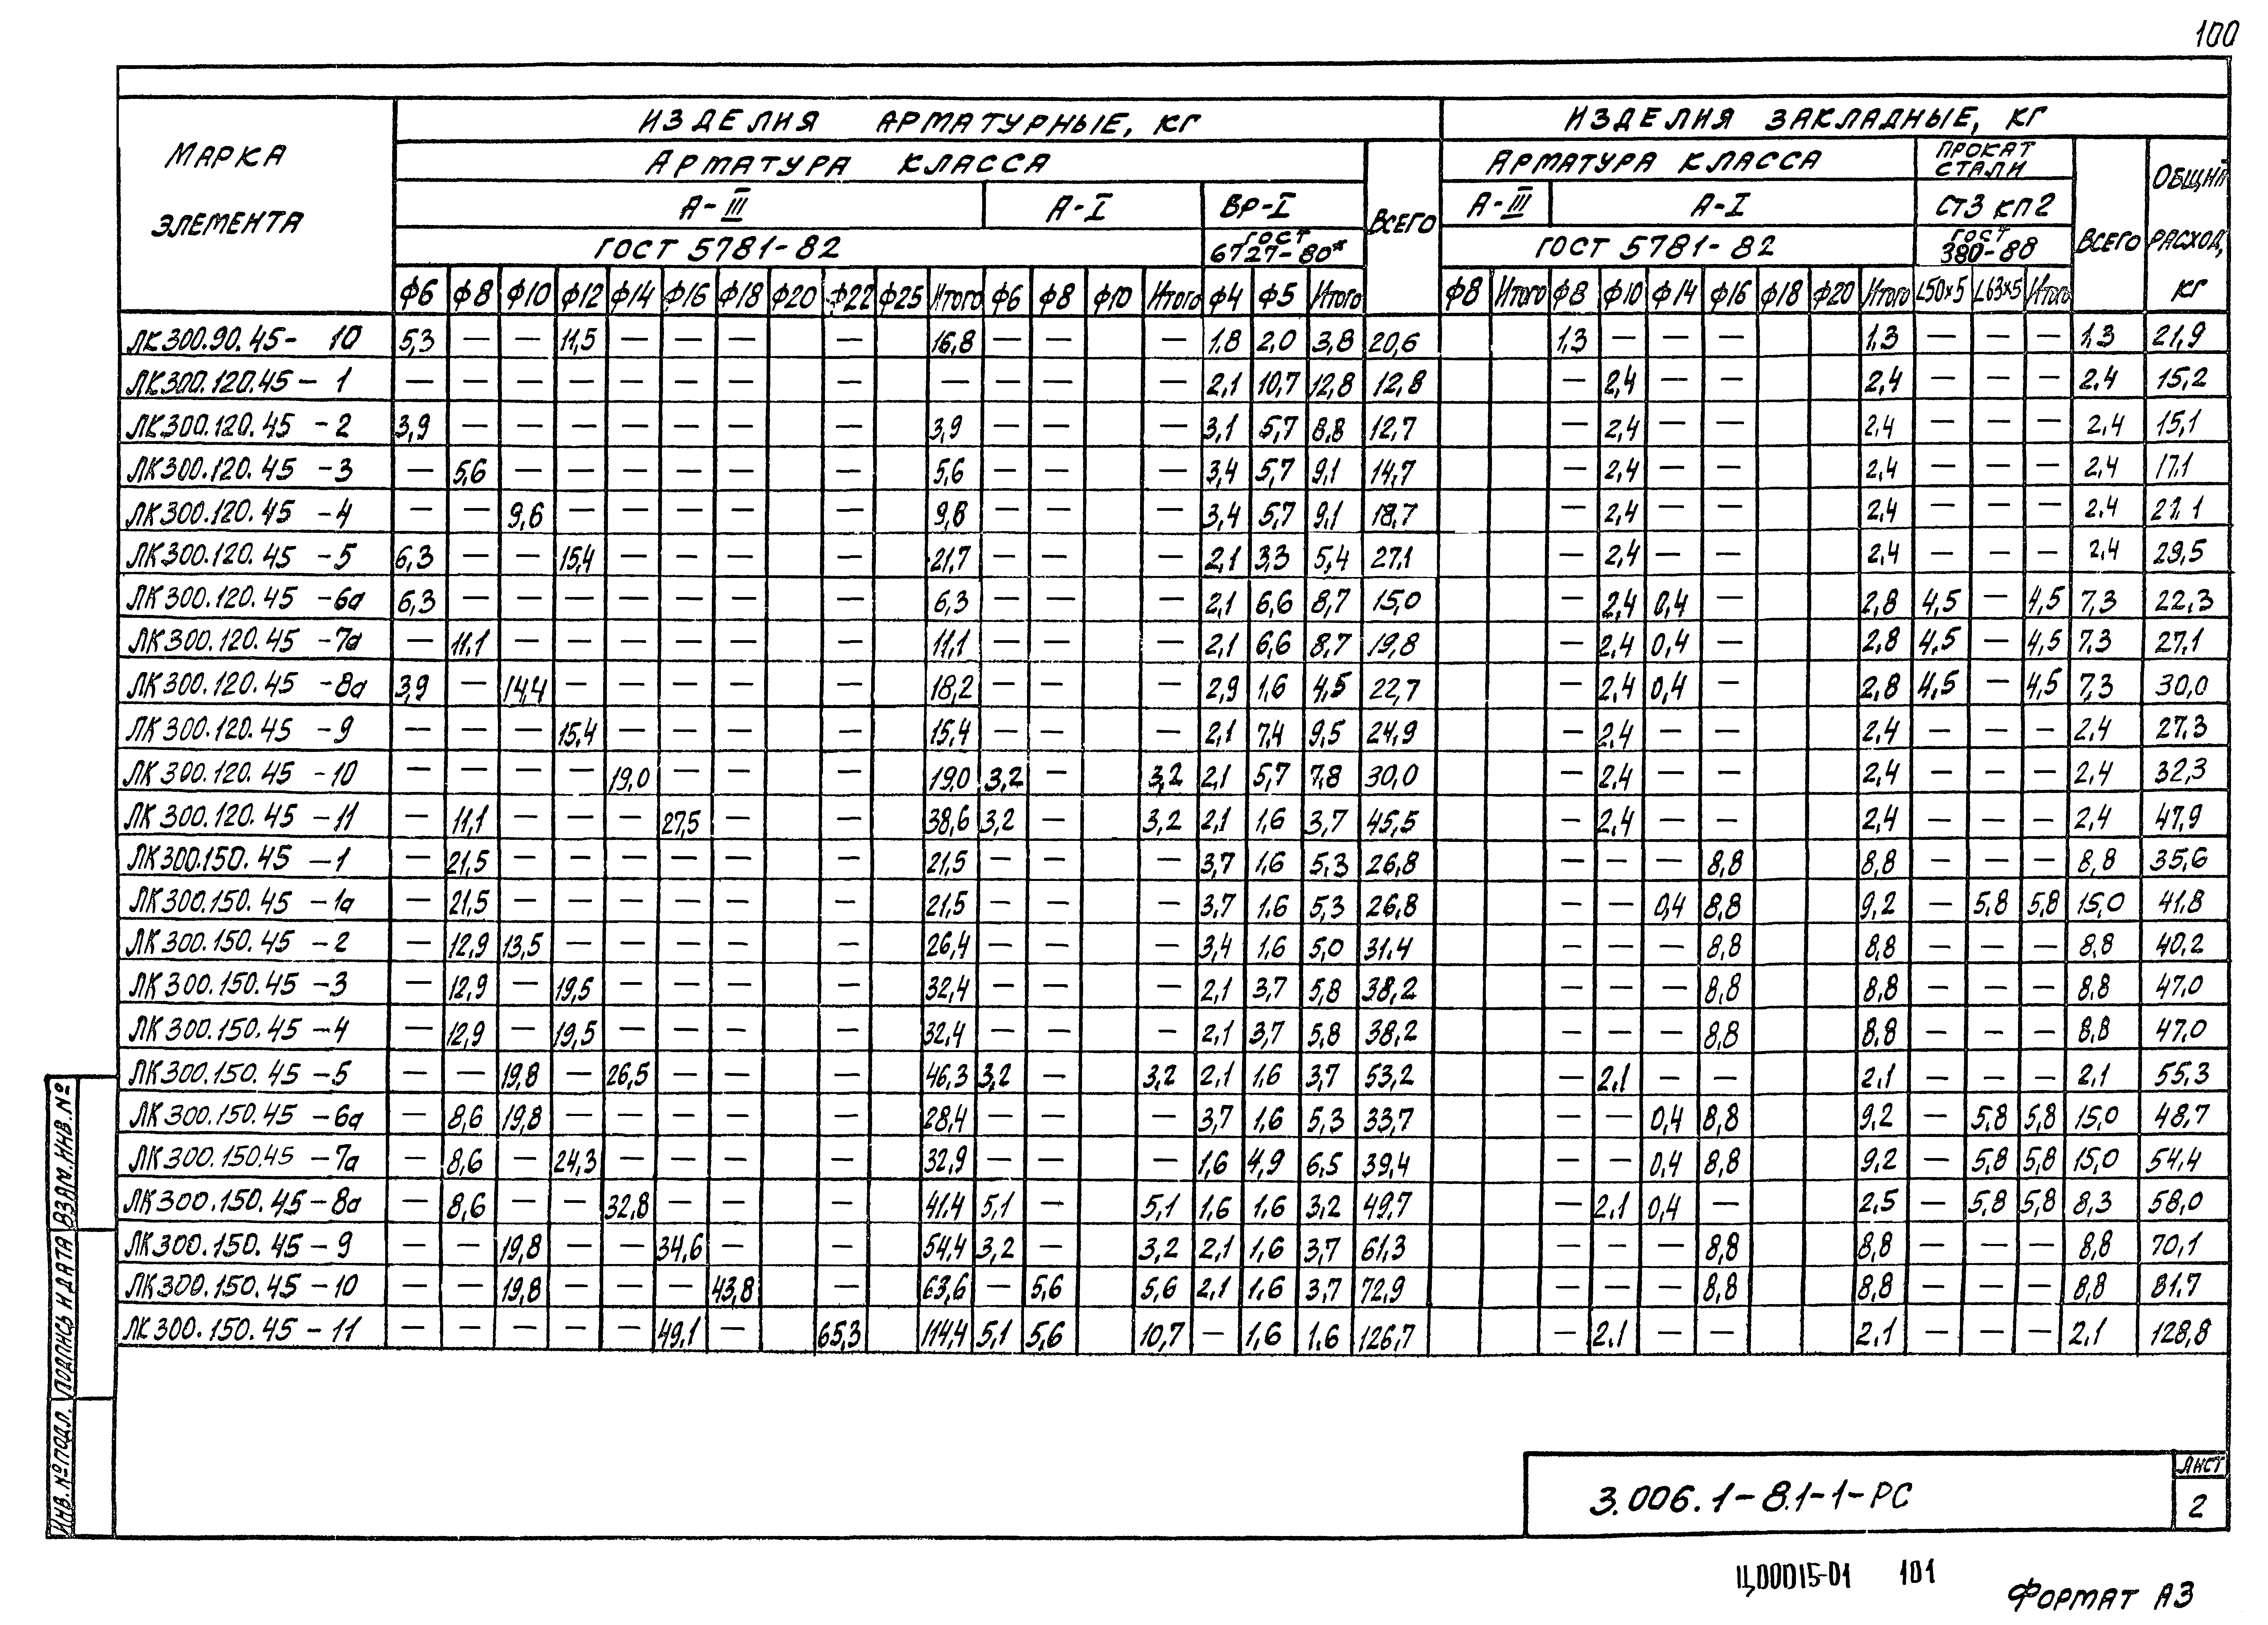 100
МАРКА ЭЛЕМЕНТА
ИЗДЕЛИЯ АРМАТУРНЫЕ, КГ
ИЗДЕЛИЯ ЗАКЛАДНЫЕ, КГ
АРМАТУРА КЛАССА
ВСЕГО
АРМАТУРА КЛАССА
ПРОКАТ СТАЛИ
ВСЕГО
ОБЩИЙ РАСХОД, КГ
А-III А-I ВР-I А-III А-I СТ3 КП2
ГОСТ 5781-82 ГОСТ 6727-80* ГОСТ 5781-82 ГОСТ 380-88
Ф6 Ф8 Ф10 Ф12 Ф14 Ф16 Ф18 Ф20 Ф22 Ф25 Итого Ф6 Ф8 Ф10 Итого Ф4 Ф5 Итого Ф8 Итого Ф8 Ф10 Ф14 Ф16 Ф18 Ф20 Итого L50×5 L63×5 Итого
ЛК300.90.45- 10 5,3 — — 11,5 — — — — 16,8 — — — 1.8 2,0 3,8 20,6 1,3 — — — 1,3 — — — 1,3 21,9
ЛК300.120.45- 1 — — — — — — — — — — — — 2,1 10,7 12,8 12,8 — 2,4 — — 2,4 — — — 2,4 15,2
ЛК300.120.45 -2 3,9 — — — — — — — 3,9 — — — 3,1 5,7 8,8 12,7 — 2,4 — — 2,4 — — — 2,4 15,1
ЛК300.120.45 -3 — 5,6 — — — — — — 5,6 — — — 3,4 5,7 9,1 14,7 — 2,4 — — 2,4 — — — 2,4 17,1
ЛК300.120.45 -4 — — 9,6 — — — — — 9,6 — — — 3,4 5,7 9,1 18,7 — 2,4 — — 2,4 — — — 2,4 21.1
ЛК300.120.45 -5 6,3 — — 15,4 — — — — 21,7 — — — 2,1 3,3 5,4 27,1 — 2,4 — — 2,4 — — — 2,4 29,5
ЛК300.120.45 -6а 6,3 — — — — — — — 6,3 — — — 2,1 6,6 8,7 15,0 — 2,4 0,4 — 2,8 4,5 — 4,5 7,3 22,3
ЛК300.120.45 -7а — 11,1 — — — — — — 11,1 — — — 2,1 6,6 8,7 19,8 — 2,4 0,4 — 2,8 4,5 — 4,5 7,3 27,1
ЛК300.120.45 -8а 3,9 — 14,4 — — — — — 18,2 — — — 2,9 1,6 4,5 22,7 — 2,4 0,4 — 2,8 4,5 — 4,5 7,3 30,0
ЛК300.120.45 -9 — — — 15,4 — — — — 15,4 — — — 2,1 7,4 9,5 24,9 — 2,4 — — 2,4 — — — 2,4 27,3
ЛК300.120.45 -10 — — — — 19,0 — — — 19,0 3,2 — 3,2 2,1 5,7 7,8 30,0 — 2,4 — — 2,4 — — — 2,4 32,3
ЛК300.120.45 -11 — 11,1 — — — 27,5 — — 38,6 3,2 — 3,2 2,1 1,6 3,7 45,5 — 2,4 — — 2,4 — — — 2,4 47,9
ЛК300.150.45 -1 — 21,5 — — — — — — 21,5 — — — 3,7 1,6 5,3 26,8 — — — 8,8 8,8 — — — 8,8 35,6
ЛК300.150.45 -1а — 21,5 — — — — — — 21,5 — — — 3,7 1,6 5,3 26,8 — — 0,4 8,8 9,2 — 5,8 5,8 15,0 41,8
ЛК300.150.45 -2 — 12,9 13,5 — — — — — 26,4 — — — 3,4 1,6 5,0 31,4 — — — 8,8 8,8 — — — 8,8 40,2
ЛК300.150.45 -3 — 12,9 — 19,5 — — — — 32,4 — — — 2,1 3,7 5,8 38,2 — — — 8,8 8,8 — — — 8,8 47,0
ЛК300.150.45 -4 — 12,9 — 19,5 — — — — 32,4 — — — 2,1 3,7 5,8 38,2 — — — 8,8 8,8 — — — 8,8 47,0
ЛК300.150.45 -5 — — 19,8 — 26,5 — — — 46,3 3,2 — 3,2 2,1 1,6 3,7 53,2 — 2,1 — — 2,1 — — — 2,1 55,3
ЛК300.150.45 -6а — 8,6 19,8 — — — — — 28,4 — — — 3,7 1,6 5,3 33,7 — — 0,4 8,8 9,2 — 5,8 5,8 15,0 48,7
ЛК300.150.45 -7а — 8,6 — 24,3 — — — — 32,9 — — — 1,6 4,9 6,5 39,4 — — 0,4 8,8 9,2 — 5,8 5,8 15,0 54,4
ЛК300.150.45-8а — 8,6 — — 32,8 — — — 41,4 5,1 — 5,1 1,6 1,6 3,2 49,7 — 2,1 0,4 — 2,5 — 5,8 5,8 8,3 58,0
ЛК300.150.45-9 — — 19,8 — — 34,6 — — 54,4 3,2 — 3,2 2,1 1,6 3,7 61,3 — — — 8,8 8,8 — — — 8,8 70,1
ЛК300.150.45-10 — — 19,8 — — — 43,8 — 63,6 — 5,6 5,6 2,1 1,6 3,7 72,9 — — — 8,8 8,8 — — — 8,8 81,7
ЛК300.150.45-11 — — — — — 49,1 — 65,3 114,4 5,1 5,6 10,7 — 1,6 1,6 126,7 — 2,1 — — 2,1 — — — 2,1 128,8
ИНВ.№ПОДЛ. ПОДПИСЬ И ДАТА ВЗАМ.ИНВ.№
3.006.1-8.1-1-РС
ЛИСТ
2
Ц00015-01 101
ФОРМАТ А3